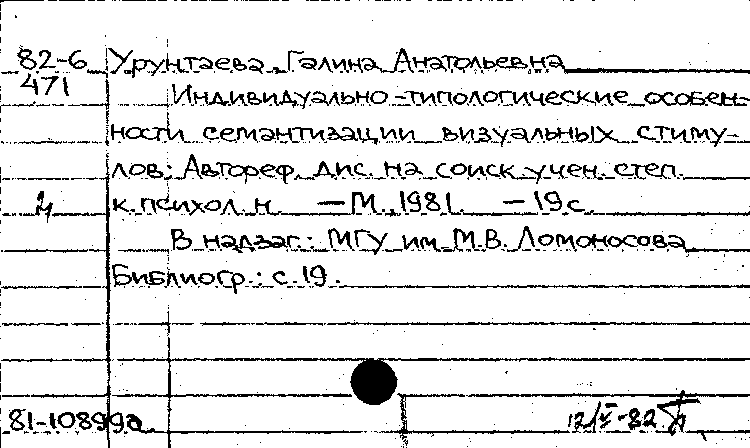 82-6 Урунтаева, Галина Анатольевна
471 Индивидуально-типологические особен-
ности семантизации визуальных стиму-
лов: Автореф. дис. на соиск. учен. степ.
к. психол. н. — М., 1981. — 19 с.
В надзаг.: МГУ им. М.В. Ломоносова
Библиогр.: с. 19.
81-10899а